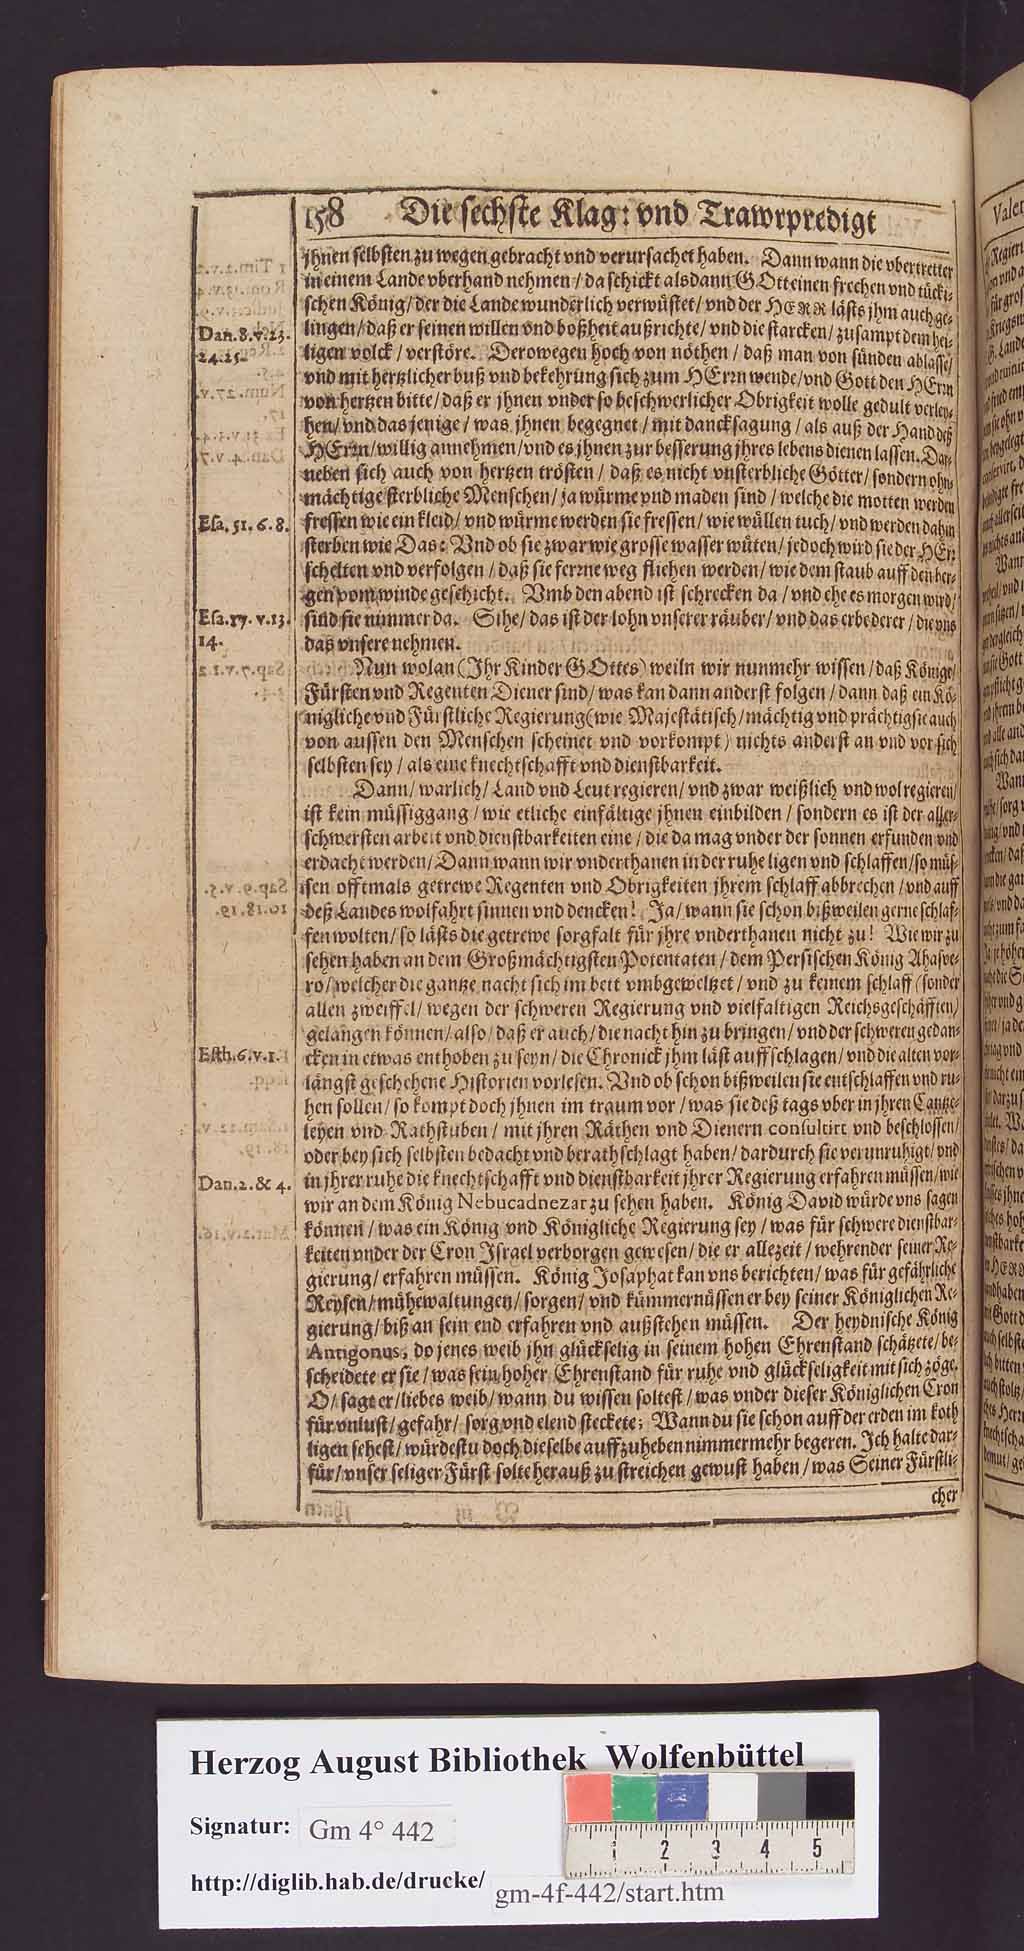 158 Die sechste Klag: vnd Trawrpredigt
jhnen selbsten zu wegen gebracht vnd verursachet haben. Dann wann die vbertretter
in einem Lande vberhand nehmen / da schickt alsdann GOtt einen frechen vnd tücki-
schen König / der die Lande wunderlich verwüstet / vnd der HERR läßts jhm auch ge-
Dan. 8. v. 23.
24. 25.
lingen / daß er seinen willen vnd boßheit außrichte / vnd die starcken / zusampt dem hei-
ligen volck / verstöre. Derowegen hoch von nöthen / daß man von sünden ablasse /
vnd mit hertzlicher buß vnd bekehrung sich zum HErrn wende / vnd Gott den HErrn
von hertzen bitte / daß er jhnen vnder so beschwerlicher Obrigkeit wolle gedult verley-
hen / vnd das jenige / was jhnen begegnet / mit dancksagung / als auß der Hand deß
HErrn / willig annehmen / vnd es jhnen zur besserung jhres lebens dienen lassen. Dar-
neben sich auch von hertzen trösten / daß es nicht vnsterbliche Götter / sondern ohn-
mächtige sterbliche Menschen / ja würme vnd maden sind / welche die motten werden
Esa. 51. 6. 8.
fressen wie ein kleid / vnd würme werden sie fressen / wie wüllen tuch / vnd werden dahin
sterben wie Das: Vnd ob sie zwar wie grosse wasser wüten / jedoch wird sie der HErr
schelten vnd verfolgen / daß sie ferrne weg fliehen werden / wie dem staub auff den ber-
gen vom winde geschicht. Vmb den abend ist schrecken da / vnd ehe es morgen wird /
Esa. 17. v. 13.
14.
sind sie nimmer da. Sihe / das ist der lohn vnserer räuber / vnd das erbe derer / die vns
das vnsere nehmen.
Nun wolan (Ihr Kinder GOttes) weiln wir nunmehr wissen / daß Könige /
Fürsten vnd Regenten Diener sind / was kan dann anderst folgen / dann daß ein Kö-
nigliche vnd Fürstliche Regierung (wie Majestätisch / mächtig vnd prächtig sie auch
von aussen den Menschen scheinet vnd vorkompt) nichts anderst an vnd vor sich
selbsten sey / als eine knechtschafft vnd dienstbarkeit.
Dann / warlich / Land vnd Leut regieren / vnd zwar weißlich vnd wol regieren /
ist kein müssiggang / wie etliche einfältige jhnen einbilden / sondern es ist der aller-
schwersten arbeit vnd dienstbarkeiten eine / die da mag vnder der sonnen erfunden vnd
erdacht werden / Dann wann wir vnderthanen in der ruhe ligen vnd schlaffen / so müs-
sen offtmals getrewe Regenten vnd Obrigkeiten jhrem schlaff abbrechen / vnd auff
deß Landes wolfahrt sinnen vnd dencken! Ja / wann sie schon bißweilen gerne schlaf-
fen wolten / so läßts die getrewe sorgfalt für jhre vnderthanen nicht zu! Wie wir zu
sehen haben an dem Großmächtigsten Potentaten / dem Persischen König Ahasve-
ro / welcher die gantze nacht sich im bett vmbgeweltzet / vnd zu keinem schlaff (sonder
allen zweiffel / wegen der schweren Regierung vnd vielfaltigen Reichsgeschäfften)
gelangen können / also / daß er auch / die nacht hin zu bringen / vnd der schweren gedan-
Esth. 6. v. 1.
cken in etwas enthoben zu seyn / die Chronick jhm läst auffschlagen / vnd die alten vor-
längst geschehene Historien vorlesen. Vnd ob schon bißweilen sie entschlaffen vnd ru-
hen sollen / so kompt doch jhnen im traum vor / was sie deß tags vber in jhren Cantze-
leyen vnd Rathstuben / mit jhren Räthen vnd Dienern consultirt vnd beschlossen /
oder bey sich selbsten bedacht vnd berathschlagt haben / dardurch sie verunruhigt / vnd
Dan. 2. & 4.
in jhrer ruhe die knechtschafft vnd dienstbarkeit jhrer Regierung erfahren müssen / wie
wir an dem König Nebucadnezar zu sehen haben. König David würde vns sagen
können / was ein König vnd Königliche Regierung sey / was für schwere dienstbar-
keiten vnder der Cron Israel verborgen gewesen / die er allezeit / wehrender seiner Re-
gierung / erfahren müssen. König Josaphat kan vns berichten / was für gefährliche
Reysen / mühewaltungen / sorgen / vnd kümmernüssen er bey seiner Königlichen Re-
gierung / biß an sein end erfahren vnd außstehen müssen. Der heydnische König
Antigonus, do jenes weib jhn glückselig in seinem hohen Ehrenstand schätzete / be-
scheidete er sie / was sein hoher Ehrenstand für ruhe vnd glückseligkeit mit sich zöge.
O / sagt er / liebes weib / wann du wissen soltest / was vnder dieser Königlichen Cron
für vnlust / gefahr / sorg vnd elend steckete; Wann du sie schon auff der erden im koth
ligen sehest / würdestu doch dieselbe auffzuheben nimmermehr begeren. Ich halte dar-
für / vnser seliger Fürst solte herauß zu streichen gewust haben / was Seiner Fürstli-
cher
Herzog August Bibliothek Wolfenbüttel
Signatur: Gm 4° 442
http://diglib.hab.de/drucke/ gm-4f-442/start.htm
1 2 3 4 5